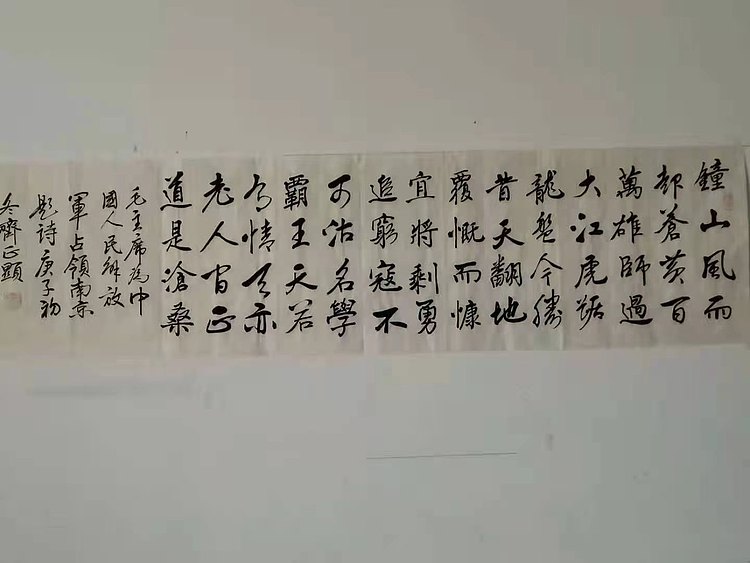 鐘山風雨
起蒼黃百
萬雄師過
大江虎踞
龍盤今勝
昔天翻地
覆慨而慷
宜將剩勇
追窮寇不
可沽名學
霸王天若
有情天亦
老人间正
道是滄桑
毛主席為中
國人民解放
軍占領南京
題詩庚子初
冬齊正顯